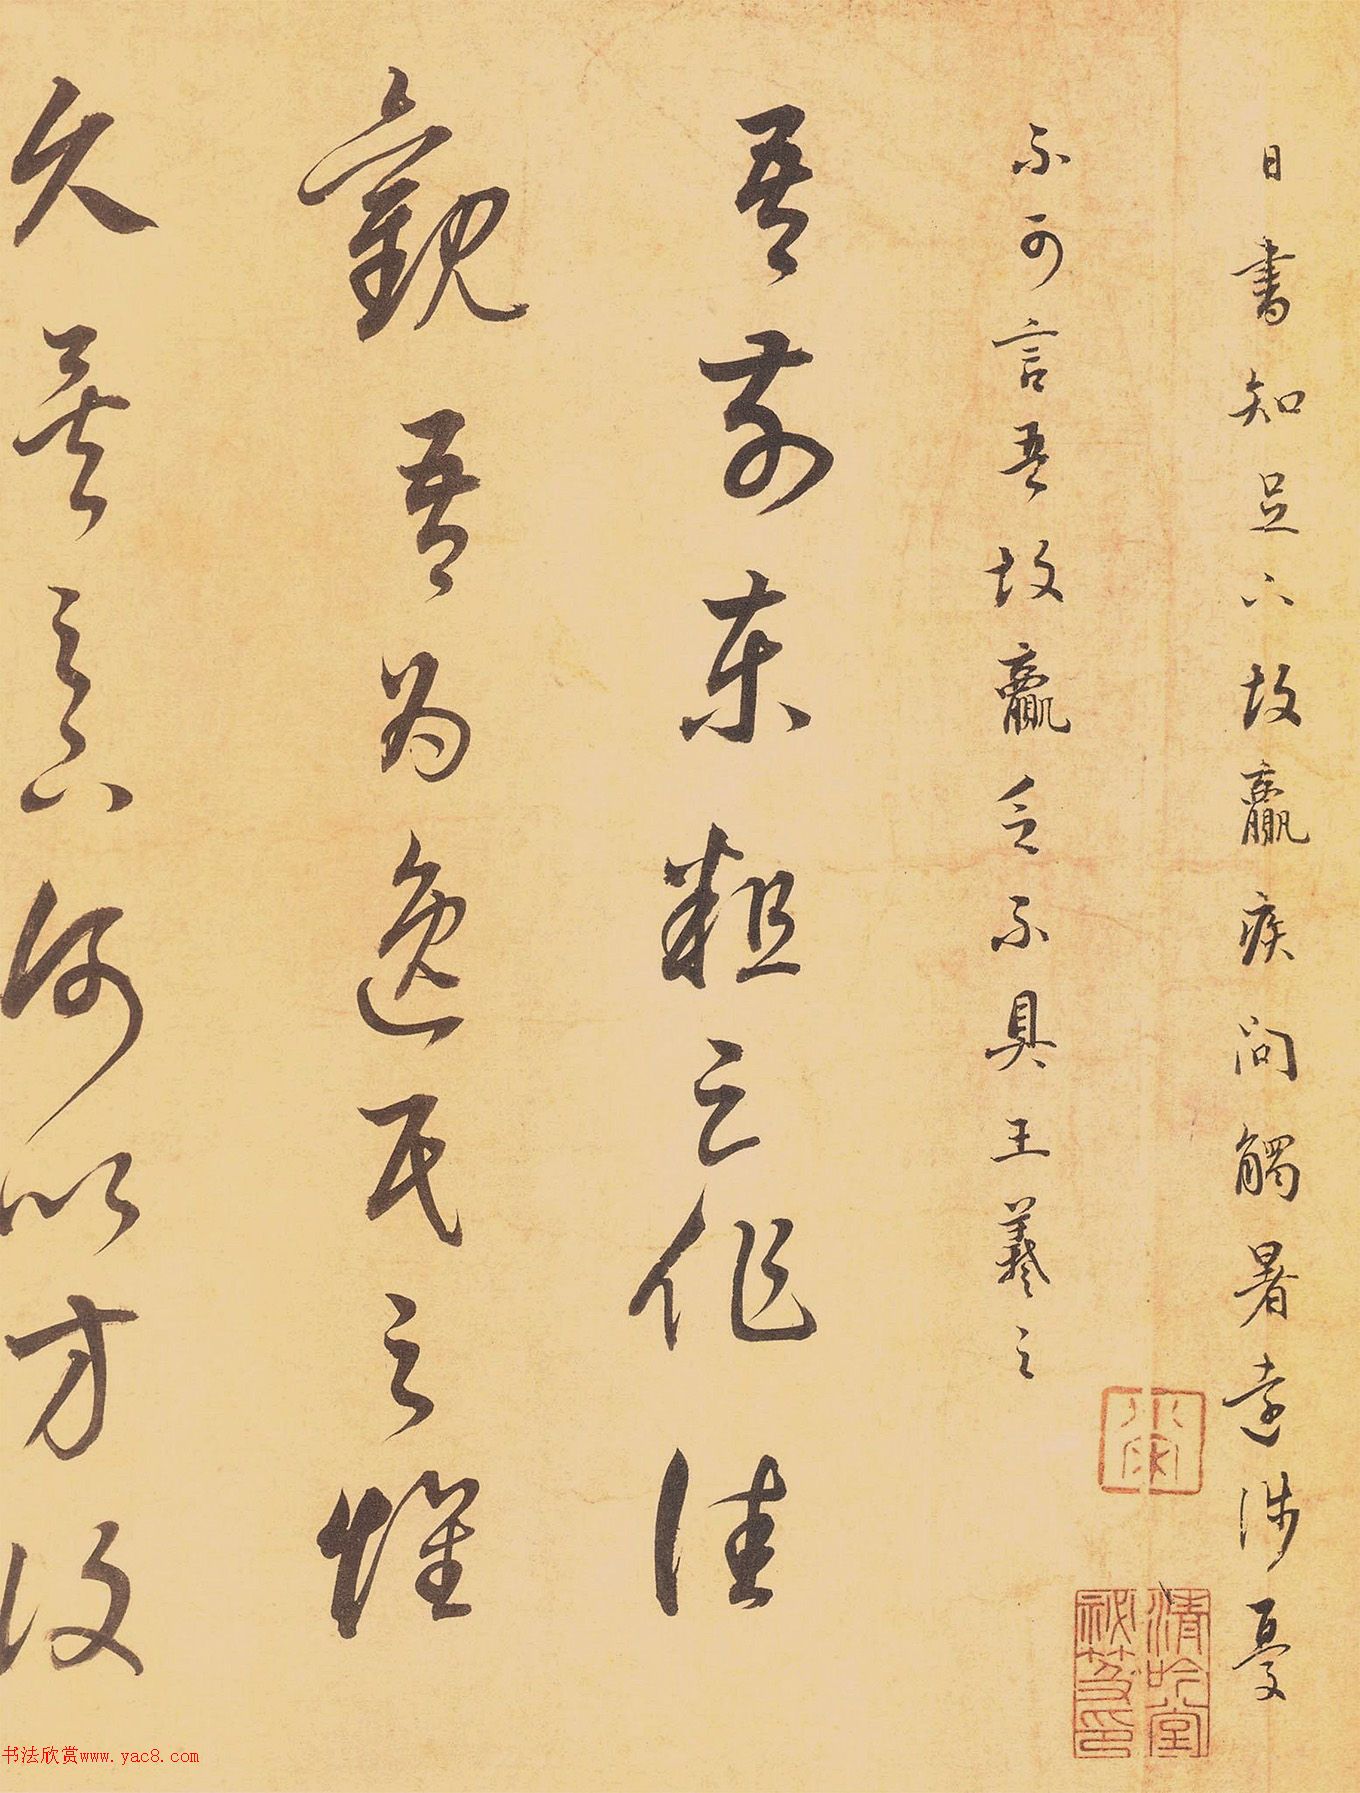 日書知足下故羸疾問觸暑遠涉憂
不可言吾故羸乏不具王羲之
吾前東粗足作佳
觀吾為逸民之懷
久矣足下何以方復
清吟堂
书法欣赏www.yac8.com